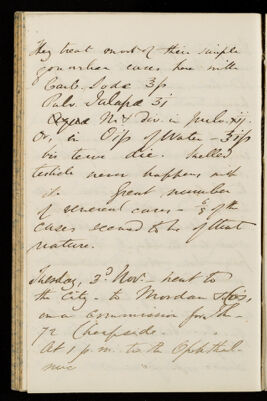 They treat most of their simple
gonorrhea cases here with
Carb. Soda ʒp
Pulv. Jalapæ ʒi
Nit div. in pulv. xij.
Or, in Oip of Water - ʒifs
bis terve die. Swelled
testicle never happens with
it. Great number
of venereal cases - 6/8 of the
cases seemed to be of that
nature.
Tuesday, 3d Nov. - went to
the City - to Mordan &
on a commission for
72 Cheapside.
At 1 p.m. to the Ophthal-
mic